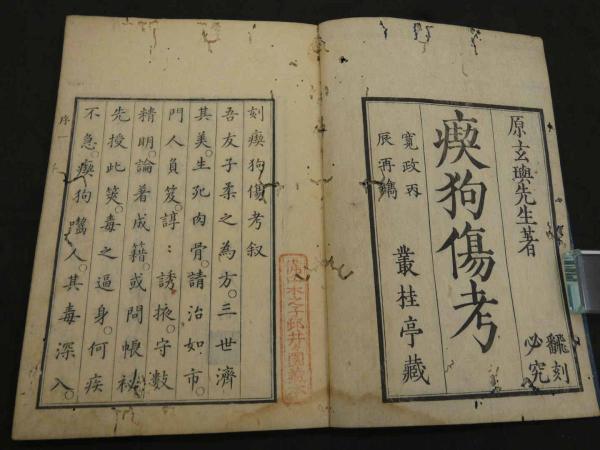 原玄與先生著
瘈狗傷考
翻刻
必究
寬政丙
辰再鐫
叢桂亭藏
刻瘈狗傷考叙
吾友子柔之為方。三世濟
其美。生死肉骨。請治如市。
門人負笈。諄〻誘掖。守數
精明。論著成籍。或問帳祕
先授此筴。毒之逼身。何疾
不急。瘈狗囓人。其毒深入。
序一